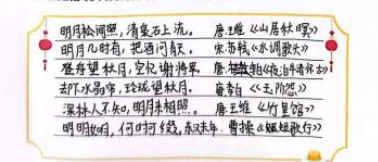 明月松间照，清泉石上流。 唐.王维《山居秋暝》
明月几时有，把酒问青天。 宋.苏轼《水调歌头》
登舟望秋月，空忆谢将军。 唐.李白《夜泊牛渚怀古》
却下水晶帘，玲珑望秋月。 唐.李白《玉阶怨》
深林人不知，明月来相照。 唐.王维《竹里馆》
明明如月，何时可掇，东汉末年.曹操《短短歌行》